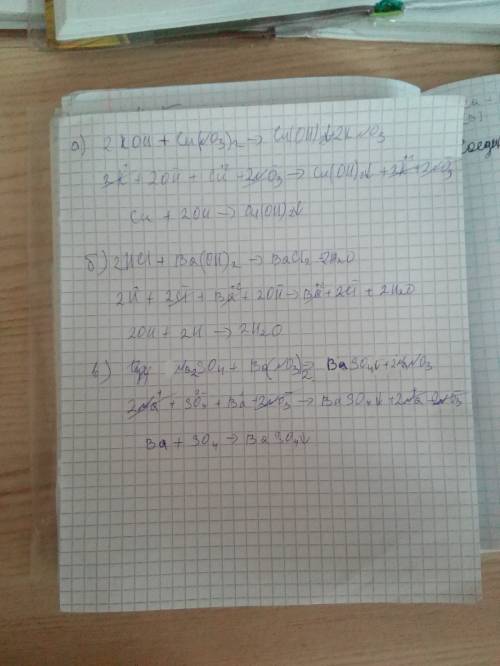 а) 2KOH + Cu(NO3)2 → Cu(OH)2↓+2KNO3
2K⁺ + 2OH⁻ + Cu⁺² + 2NO3⁻ → Cu(OH)2↓ + 2K⁺ + 2NO3⁻
Cu + 2OH → Cu(OH)2↓
б) 2HCl + Ba(OH)2 → BaCl2 + 2H2O
2H⁺ + 2Cl⁻ + Ba⁺² + 2OH⁻ → Ba⁺² + 2Cl⁻ + 2H2O
2OH + 2H → 2H2O
в) Na2SO4 + Ba(NO3)2 → BaSO4↓ + 2NaNO3
2Na⁺ + SO4²⁻ + Ba + 2NO3⁻ → BaSO4↓ + 2Na⁺ 2NO3⁻
Ba + SO4 → BaSO4↓